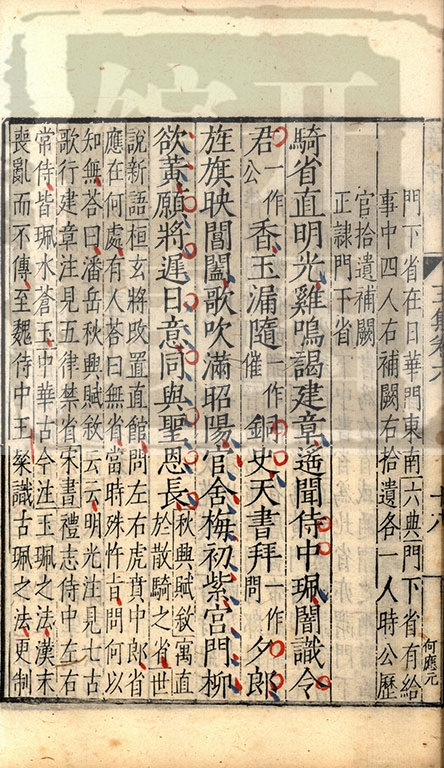 門下省在日華門東南六典門下省有給
事中四人右補闕右拾遺各一人時公歷
官拾遺補闕
正隸門下省
騎省直明光雞鳴謁建章遙聞侍中珮闇識令
君一作公香玉漏隨一作催銅史天書拜一作問夕郎
旌旗映閶闔歌吹滿昭陽官舍梅初紫宮門柳
欲黃願將遲日意同與聖恩長秋興賦敘寓直於散騎之省世
說新語桓玄將改置直館問左右虎賁中郎省
應在何處有人荅曰無省當時殊忤旨問何以
知無荅曰潘岳秋興賦敘云云明光注見七古
歌行建章注見五律禁省宋書禮志侍中左右
常侍皆珮水蒼玉中華古今注玉珮之法漢末
喪亂而不傳至魏侍中王粲識古珮之法更制
何應元